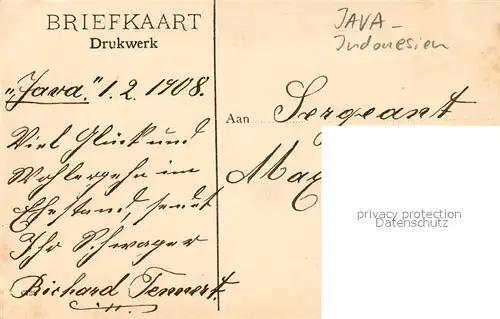 BRIEFKAART
Drukwerk
JAVA -
Indonesien
„Java." 1.2.1908.
Viel Glück und
Wohlergehn im
Ehestand, sendet
Ihr Schwager
Richard Tennert.
Aan Sergeant
Max
privacy protection
www.ansichtskartenversand.com